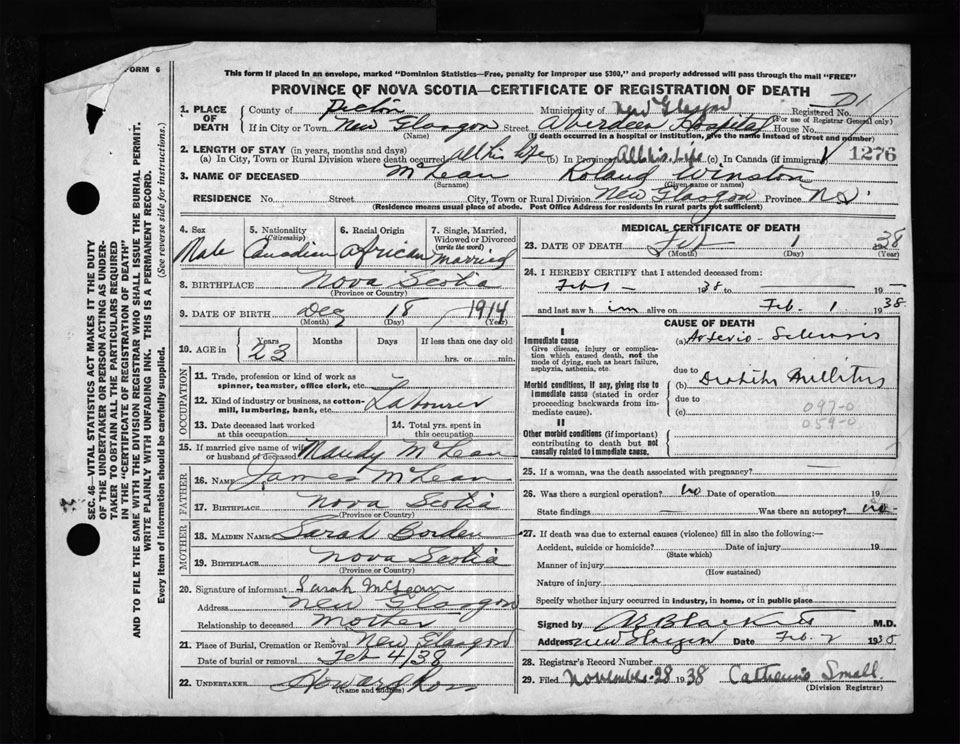 FORM 6
This form if placed in an envelope, marked "Dominion Statistics—Free, penalty for improper use $300," and properly addressed will pass through the mail "FREE"
PROVINCE OF NOVA SCOTIA—CERTIFICATE OF REGISTRATION OF DEATH
1. PLACE OF DEATH
County of Pictou Municipality of New Glasgow Registered No.
(For use of Registrar General only)
If in City or Town New Glasgow Street Aberdeen Hospital House No.
(Name) (If death occurred in a hospital or institution, give the name instead of street and number)
1276
2. LENGTH OF STAY (in years, months and days)
(a) In City, Town or Rural Division where death occurred All his life (b) In Province All his life (c) In Canada (if immigrant)
3. NAME OF DECEASED McLean Roland Winston
(Surname) (Given name or names)
RESIDENCE No. Street City, Town or Rural Division New Glasgow Province N.S.
(Residence means usual place of abode. Post Office Address for residents in rural parts not sufficient)
4. Sex Male
5. Nationality (Citizenship) Canadian
6. Racial Origin African
7. Single, Married, Widowed or Divorced (write the word) Married
8. BIRTHPLACE Nova Scotia
(Province or Country)
9. DATE OF BIRTH Dec 18 1914
(Month) (Day) (Year)
10. AGE in Years 23 Months Days If less than one day old
hrs. or min.
OCCUPATION
11. Trade, profession or kind of work as spinner, teamster, office clerk, etc.
12. Kind of industry or business, as cotton-mill, lumbering, bank, etc. Labourer
13. Date deceased last worked at this occupation
14. Total yrs. spent in this occupation
15. If married give name of wife or husband of deceased Mandy McLean
FATHER
16. NAME James McLean
17. BIRTHPLACE Nova Scotia
(Province or Country)
MOTHER
18. MAIDEN NAME Sarah Borden
19. BIRTHPLACE Nova Scotia
(Province or Country)
20. Signature of informant Sarah McLean
Address New Glasgow
Relationship to deceased Mother
21. Place of Burial, Cremation or Removal New Glasgow
Date of burial or removal Feb 4/38
22. UNDERTAKER
(Name and address)
MEDICAL CERTIFICATE OF DEATH
23. DATE OF DEATH Feb 1 1938
(Month) (Day) (Year)
24. I HEREBY CERTIFY that I attended deceased from:
Feb 1 1938 to 19
and last saw him alive on Feb. 1 1938
CAUSE OF DEATH
I
Immediate cause (a) Arterio-Sclerosis
Give disease, injury or complication which caused death, not the mode of dying, such as heart failure, asphyxia, asthenia, etc.
due to
Morbid conditions, if any, giving rise to immediate cause (stated in order proceeding backwards from immediate cause). (b) Diabetes Mellitus
due to
(c)
097-0
059-0
II
Other morbid conditions (if important) contributing to death but not causally related to immediate cause.
25. If a woman, was the death associated with pregnancy? —
26. Was there a surgical operation? no Date of operation 19
State findings — Was there an autopsy? no
27. If death was due to external causes (violence) fill in also the following:—
Accident, suicide or homicide? Date of injury 19
(State which)
Manner of injury
(How sustained)
Nature of injury
Specify whether injury occurred in industry, in home, or in public place
Signed by M.D.
Address New Glasgow Date Feb. 2 1938
28. Registrar's Record Number
29. Filed November-28 1938 Catherine Small
(Division Registrar)
SEC. 46—VITAL STATISTICS ACT MAKES IT THE DUTY
OF THE UNDERTAKER OR PERSON ACTING AS UNDER-
TAKER TO OBTAIN ALL THE PARTICULARS REQUIRED
IN THE "CERTIFICATE OF REGISTRATION OF DEATH"
AND TO FILE THE SAME WITH THE DIVISION REGISTRAR WHO SHALL ISSUE THE BURIAL PERMIT.
WRITE PLAINLY WITH UNFADING INK. THIS IS A PERMANENT RECORD.
Every item of information should be carefully supplied. (See reverse side for instructions.)